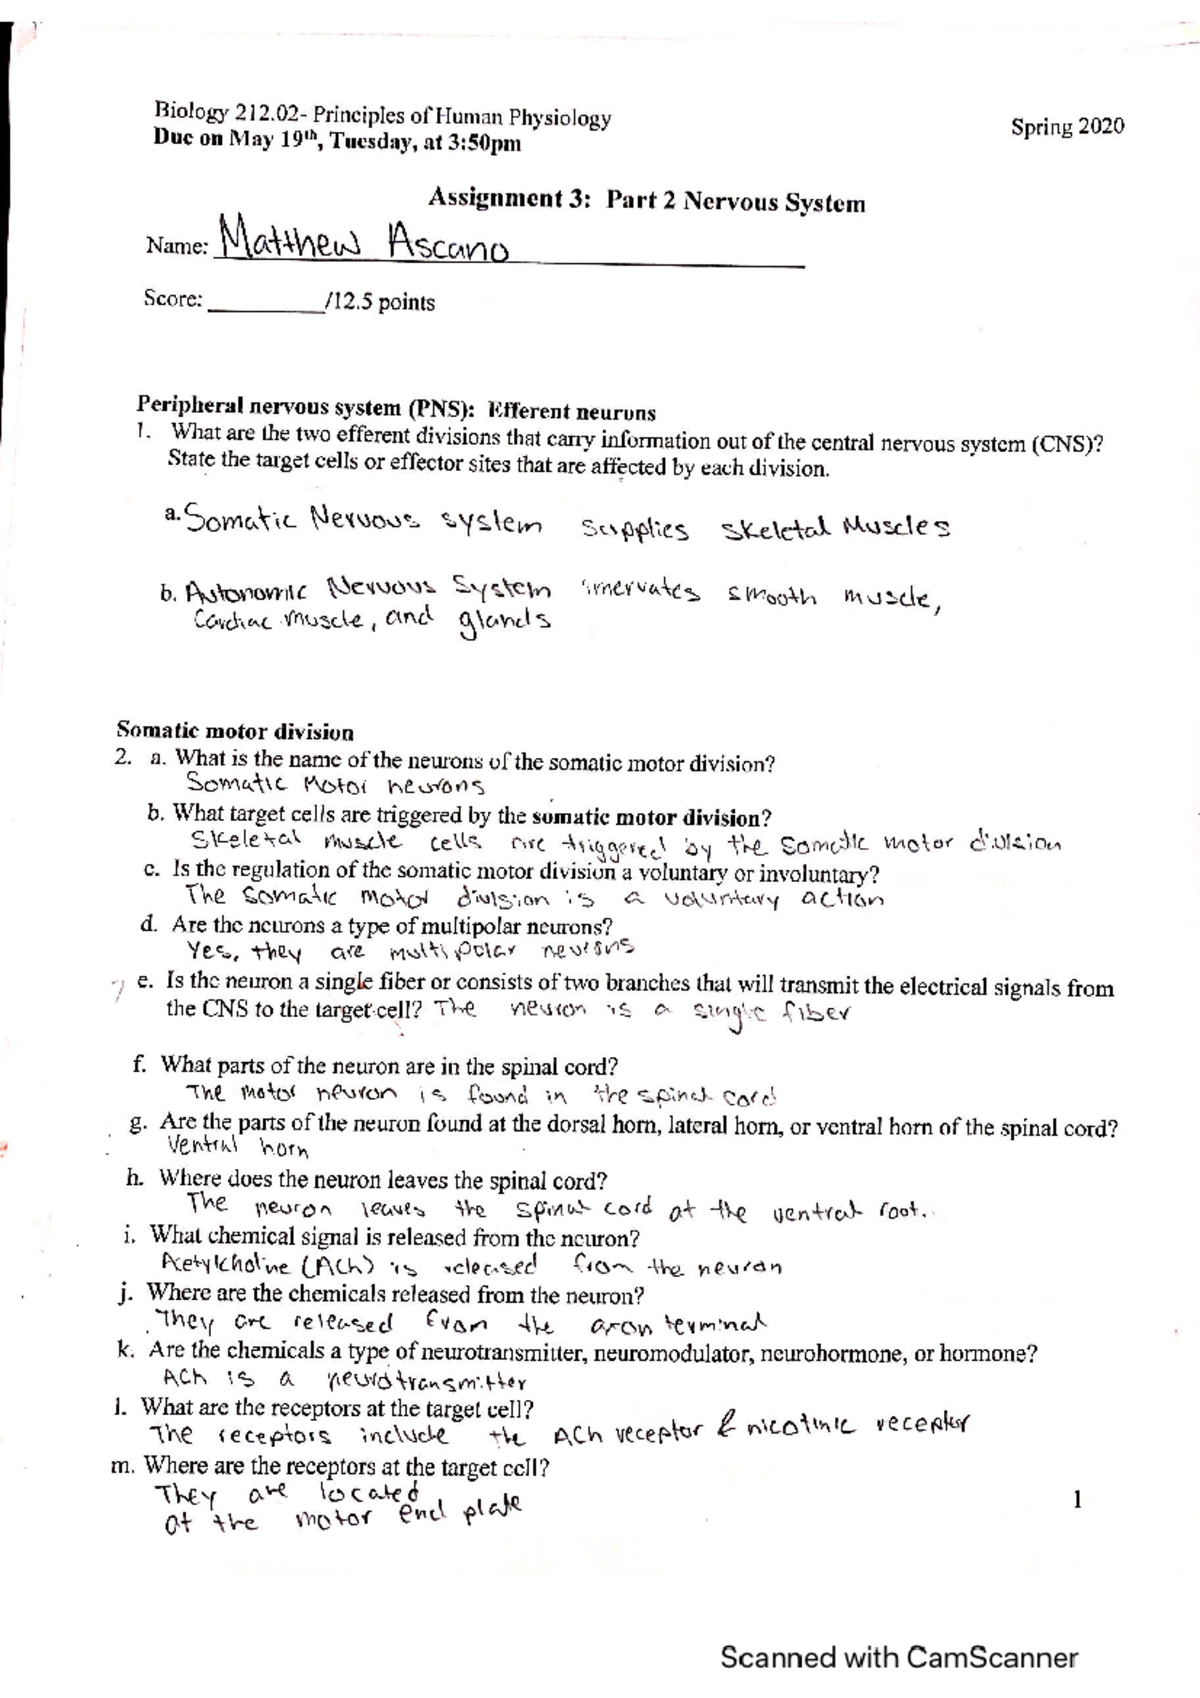 Biology 212.02- Principles of Human Physiology
Spring 2020
Due on May 19th, Tuesday, at 3:50pm
Assignment 3: Part 2 Nervous System
Name: Matthew Ascano
Score: /12.5 points
Peripheral nervous system (PNS): Efferent neurons
1. What are the two efferent divisions that carry information out of the central nervous system (CNS)?
State the target cells or effector sites that are affected by each division.
a. Somatic Nervous system supplies skeletal Muscles
b. Autonomic Nervous System innervates smooth muscle,
Cardiac muscle, and glands
Somatic motor division
2. a. What is the name of the neurons of the somatic motor division?
Somatic Motor neurons
b. What target cells are triggered by the somatic motor division?
Skeletal muscle cells are triggered by the Somatic motor division
c. Is the regulation of the somatic motor division a voluntary or involuntary?
The Somatic motor division is a voluntary action
d. Are the neurons a type of multipolar neurons?
Yes, they are multipolar neurons
e. Is the neuron a single fiber or consists of two branches that will transmit the electrical signals from
the CNS to the target cell? The neuron is a single fiber
f. What parts of the neuron are in the spinal cord?
The motor neuron is found in the spinal cord
g. Are the parts of the neuron found at the dorsal horn, lateral horn, or ventral horn of the spinal cord?
Ventral horn
h. Where does the neuron leaves the spinal cord?
The neuron leaves the spinal cord at the ventral root.
i. What chemical signal is released from the neuron?
Acetylcholine (ACh) is released from the neuron
j. Where are the chemicals released from the neuron?
They are released from the axon terminal
k. Are the chemicals a type of neurotransmitter, neuromodulator, neurohormone, or hormone?
ACh is a neurotransmitter
l. What are the receptors at the target cell?
The receptors include the ACh receptor & nicotinic receptor
m. Where are the receptors at the target cell?
They are located
at the motor end plate
1
Scanned with CamScanner